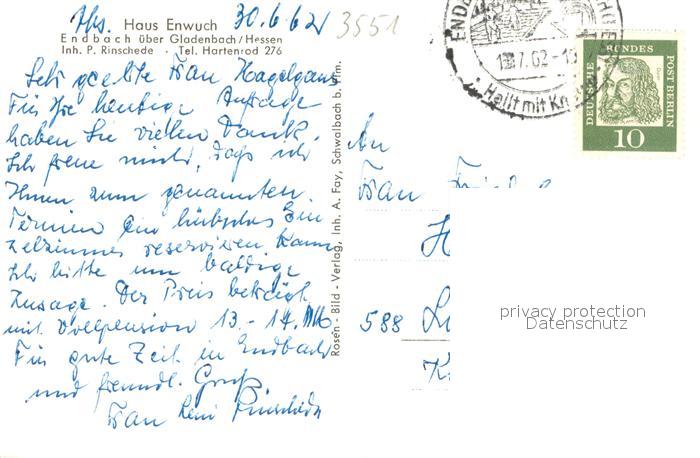 Haus Enwuch 30.6.62 3551
Endbach über Gladenbach/Hessen
Inh. P. Rinschede · Tel. Hartenrod 276
Sehr geehrte Frau Hagelgans
Für Ihre heutige Anfrage
haben Sie vielen Dank.
Ich freue mich, dass ich
Ihnen zum genannten
Termin ein hübsches Ein
zelzimmer reservieren kann
Ich bitte um baldige
Zusage. Der Preis beträgt
mit Vollpension 13.- 14. MK
Für gute Zeit in Endbach
und freundl. Gruß.
Frau Reni Rinschede
Rosen - Bild - Verlag, Inh. A. Fay, Schwalbach b. Wlm.
7.62-1
Heilt mit Kn
DEUTSCHE BUNDESPOST BERLIN
10
An
Frau
588
privacy protection
Datenschutz